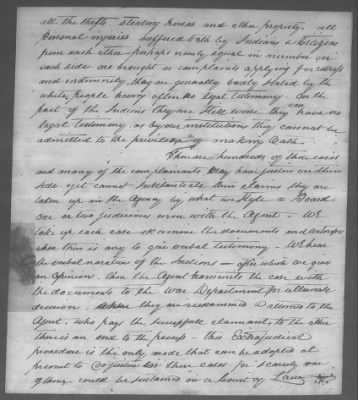 all the thefts stealing horses and other property, all
personal injuries suffered both by Indians & Citizens
from each other perhaps nearly equal in number on
each side are brought as complaints applying for redress
and indemnity, they are generally badly stated by the
white people having often no legal testimony. On the
part of the Indians they are still worse they can have no
legal testimony, as by our institutions they cannot be
admitted to the priviledge of making Oath.
There are hundreds of these cases
and many of the complainants may have justice on their
side yet cannot substantiate their claims they are
taken up in the Agency by what we style a Board
one or two judicious men with the Agent - We
take up each case examine the documents and
when there is any to give verbal testimony - We hear
the verbal narrative of the Indians - after which we give
an Opinion, then the Agent transmits the case with
the documents to the War Department for ultimate
decision they are reexamined & returned to the
Agent, who pays the successfull claimant, to the other
there is an end to the process - this Extrajudicial
procedure is the only mode that can be adopted at
present to these cases for scarcely one
of them could be sustained in a Court of Law